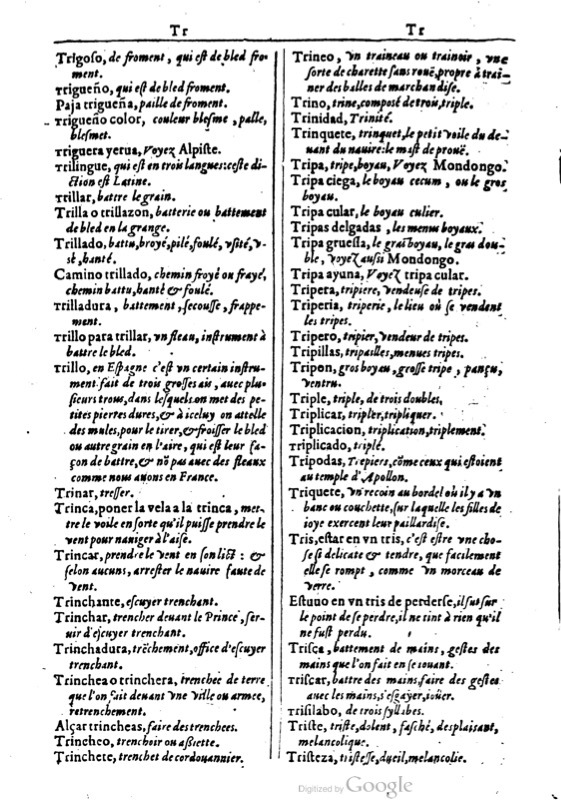 Tr
Trigoso, de froment, qui est de bled fro-
ment.
Trigueño, qui est de bled froment.
Paja trigueña, paille de froment.
Trigueño color, couleur blesme, palle,
blesmet.
Triguera yerua, Voyez Alpiste.
Trilingue, qui est en trois langues: ceste di-
ction est Latine.
Trillar, battre le grain.
Trilla o trillazon, batterie ou battement
de bled en la grange.
Trillado, battu, broyé, pilé, foulé, vsité, v-
sé, hanté.
Camino trillado, chemin froyé ou frayé,
chemin battu, hanté & foulé.
Trilladura, battement, secousse, frappe-
ment.
Trillo para trillar, vn fleau, instrument à
battre le bled.
Trillo, en Espagne c'est vn certain instru-
ment fait de trois grosses ais, auec plu-
sieurs trous, dans lesquels on met des pe-
tites pierres dures, & à iceluy on attelle
des mules, pour le tirer, & froisser le bled
ou autre grain en l'aire, qui est leur fa-
çon de battre, & nõ pas auec des fleaux
comme nous auons en France.
Trinar, tresser.
Trinca, poner la vela a la trinca, met-
tre le voile en sorte qu'il puisse prendre le
vent pour nauiger à l'aise.
Trincar, prendre le vent en son lict: &
selon aucuns, arrester le nauire faute de
vent.
Trinchante, escuyer trenchant.
Trinchar, trencher deuant le Prince, ser-
uir d'escuyer trenchant.
Trinchadura, trẽchement, office d'escuyer
trenchant.
Trinchea o trinchera, trenchee de terre
que l'on fait deuant vne ville ou armee,
retrenchement.
Alçar trincheas, faire des trenchees.
Trincheo, trenchoir ou assiette.
Trinchete, trenchet de cordouannier.
Tr
Trineo, vn traineau ou trainoir, vne
sorte de charette sans rouë, propre à trai-
ner des balles de marchandise.
Trino, trine, composé de trois, triple.
Trinidad, Trinité.
Trinquete, trinquet, le petit voile du de-
uant du nauire: le mast de prouë.
Tripa, tripe, boyau, Voyez Mondongo.
Tripa ciega, le boyau cecum, ou le gros
boyau.
Tripa cular, le boyau culier.
Tripas delgadas, les menus boyaux.
Tripa gruessa, le grãd boyau, le gras dou-
ble, voyez aussi Mondongo.
Tripa ayuna, Voyez tripa cular.
Tripera, tripiere, vendeuse de tripes.
Triperia, triperie, le lieu où se vendent
les tripes.
Tripero, tripier, vendeur de tripes.
Tripillas, tripailles, menues tripes.
Tripon, gros boyau, grosse tripe, pançu,
ventru.
Triple, triple, de trois doubles.
Triplicar, tripler, tripliquer.
Triplicacion, triplication, triplement.
Triplicado, triplé.
Tripodas, Trepiers, cõme ceux qui estoient
au temple d'Apollon.
Triquete, vn recoin au bordel où il y a vn
banc ou couchette, sur laquelle les filles de
ioye exercent leur paillardise.
Tris, estar en vn tris, c'est estre vne cho-
se si delicate & tendre, que facilement
elle se rompt, comme vn morceau de
verre.
Estuuo en vn tris de perderse, il fut sur
le point de se perdre, il ne tint à rien qu'il
ne fust perdu.
Trisca, battement de mains, gestes des
mains que l'on fait en se iouant.
Triscar, battre des mains, faire des gestes
auec les mains, s'esgayer, ioüer.
Trisilabo, de trois syllabes.
Triste, triste, dolent, fasché, desplaisant,
melancolique.
Tristeza, tristesse, dueil, melancolie.
Digitized by Google